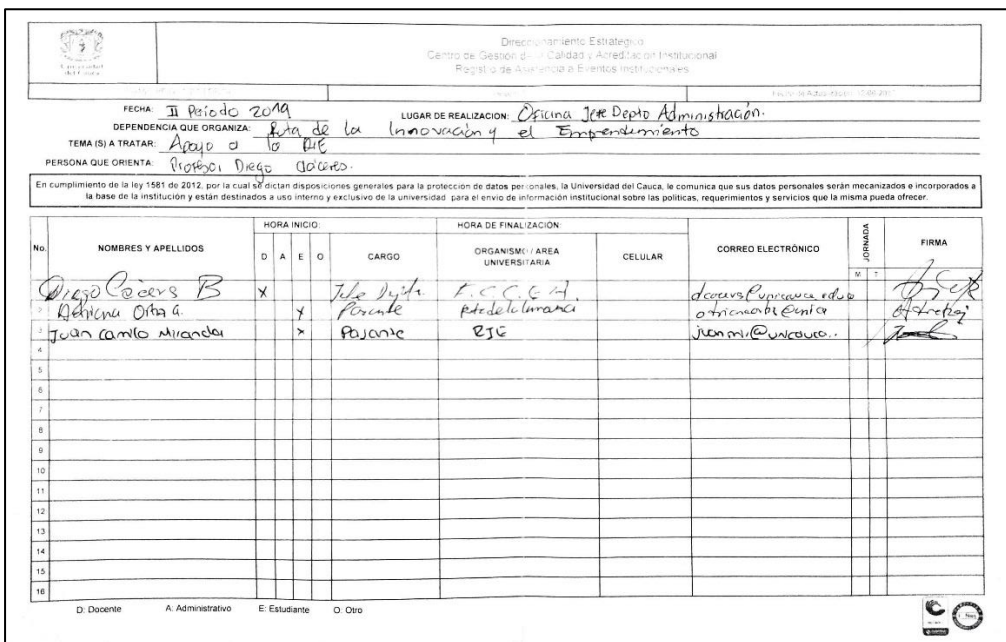 Universidad
del Cauca
Direccionamiento Estratégico
Centro de Gestión de la Calidad y Acreditación Institucional
Registro de Asistencia a Eventos Institucionales
FECHA: II Periodo 2019
LUGAR DE REALIZACION: Oficina Jefe Depto Administración.
DEPENDENCIA QUE ORGANIZA: Ruta de la Innovación y el Emprendimiento
TEMA (S) A TRATAR: Apoyo a la RIE
PERSONA QUE ORIENTA: Profesor Diego Cáceres.
En cumplimiento de la ley 1581 de 2012, por la cual se dictan disposiciones generales para la protección de datos personales, la Universidad del Cauca, le comunica que sus datos personales serán mecanizados e incorporados a
la base de la institución y están destinados a uso interno y exclusivo de la universidad para el envio de información institucional sobre las políticas, requerimientos y servicios que la misma pueda ofrecer.
HORA INICIO: HORA DE FINALIZACIÓN:
No. NOMBRES Y APELLIDOS D A E O CARGO ORGANISMO / AREA UNIVERSITARIA CELULAR CORREO ELECTRÓNICO JORNADA M T FIRMA
Diego Cáceres B X Jefe F.C.C.E.A.
2 Adriana X
3 Juan Camilo Miranda x Pasante RIE
4
5
6
7
8
9
10
11
12
13
14
15
16
D: Docente A: Administrativo E: Estudiante O: Otro